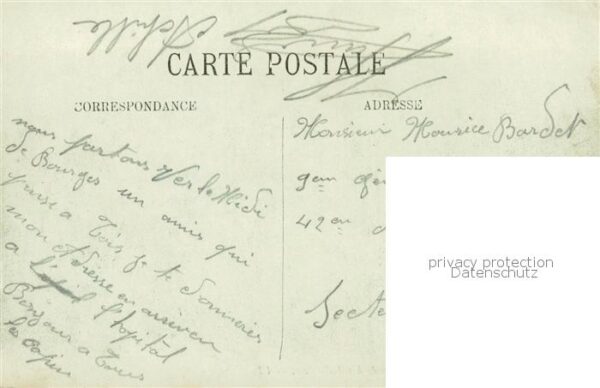 Achille
CARTE POSTALE
CORRESPONDANCE
ADRESSE
nous partons vers le Midi
de Bourges un amis qui
pense a Toi, Je te donnerer
mon Adresse en arriven
a l'hopital
Bonjour a Tous
les copin
Monsieur Mourice Bardet
9em
42em
Secte
privacy protection
Datenschutz